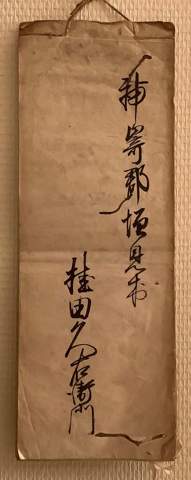 神寄郡垣見村
桂田久右衛門